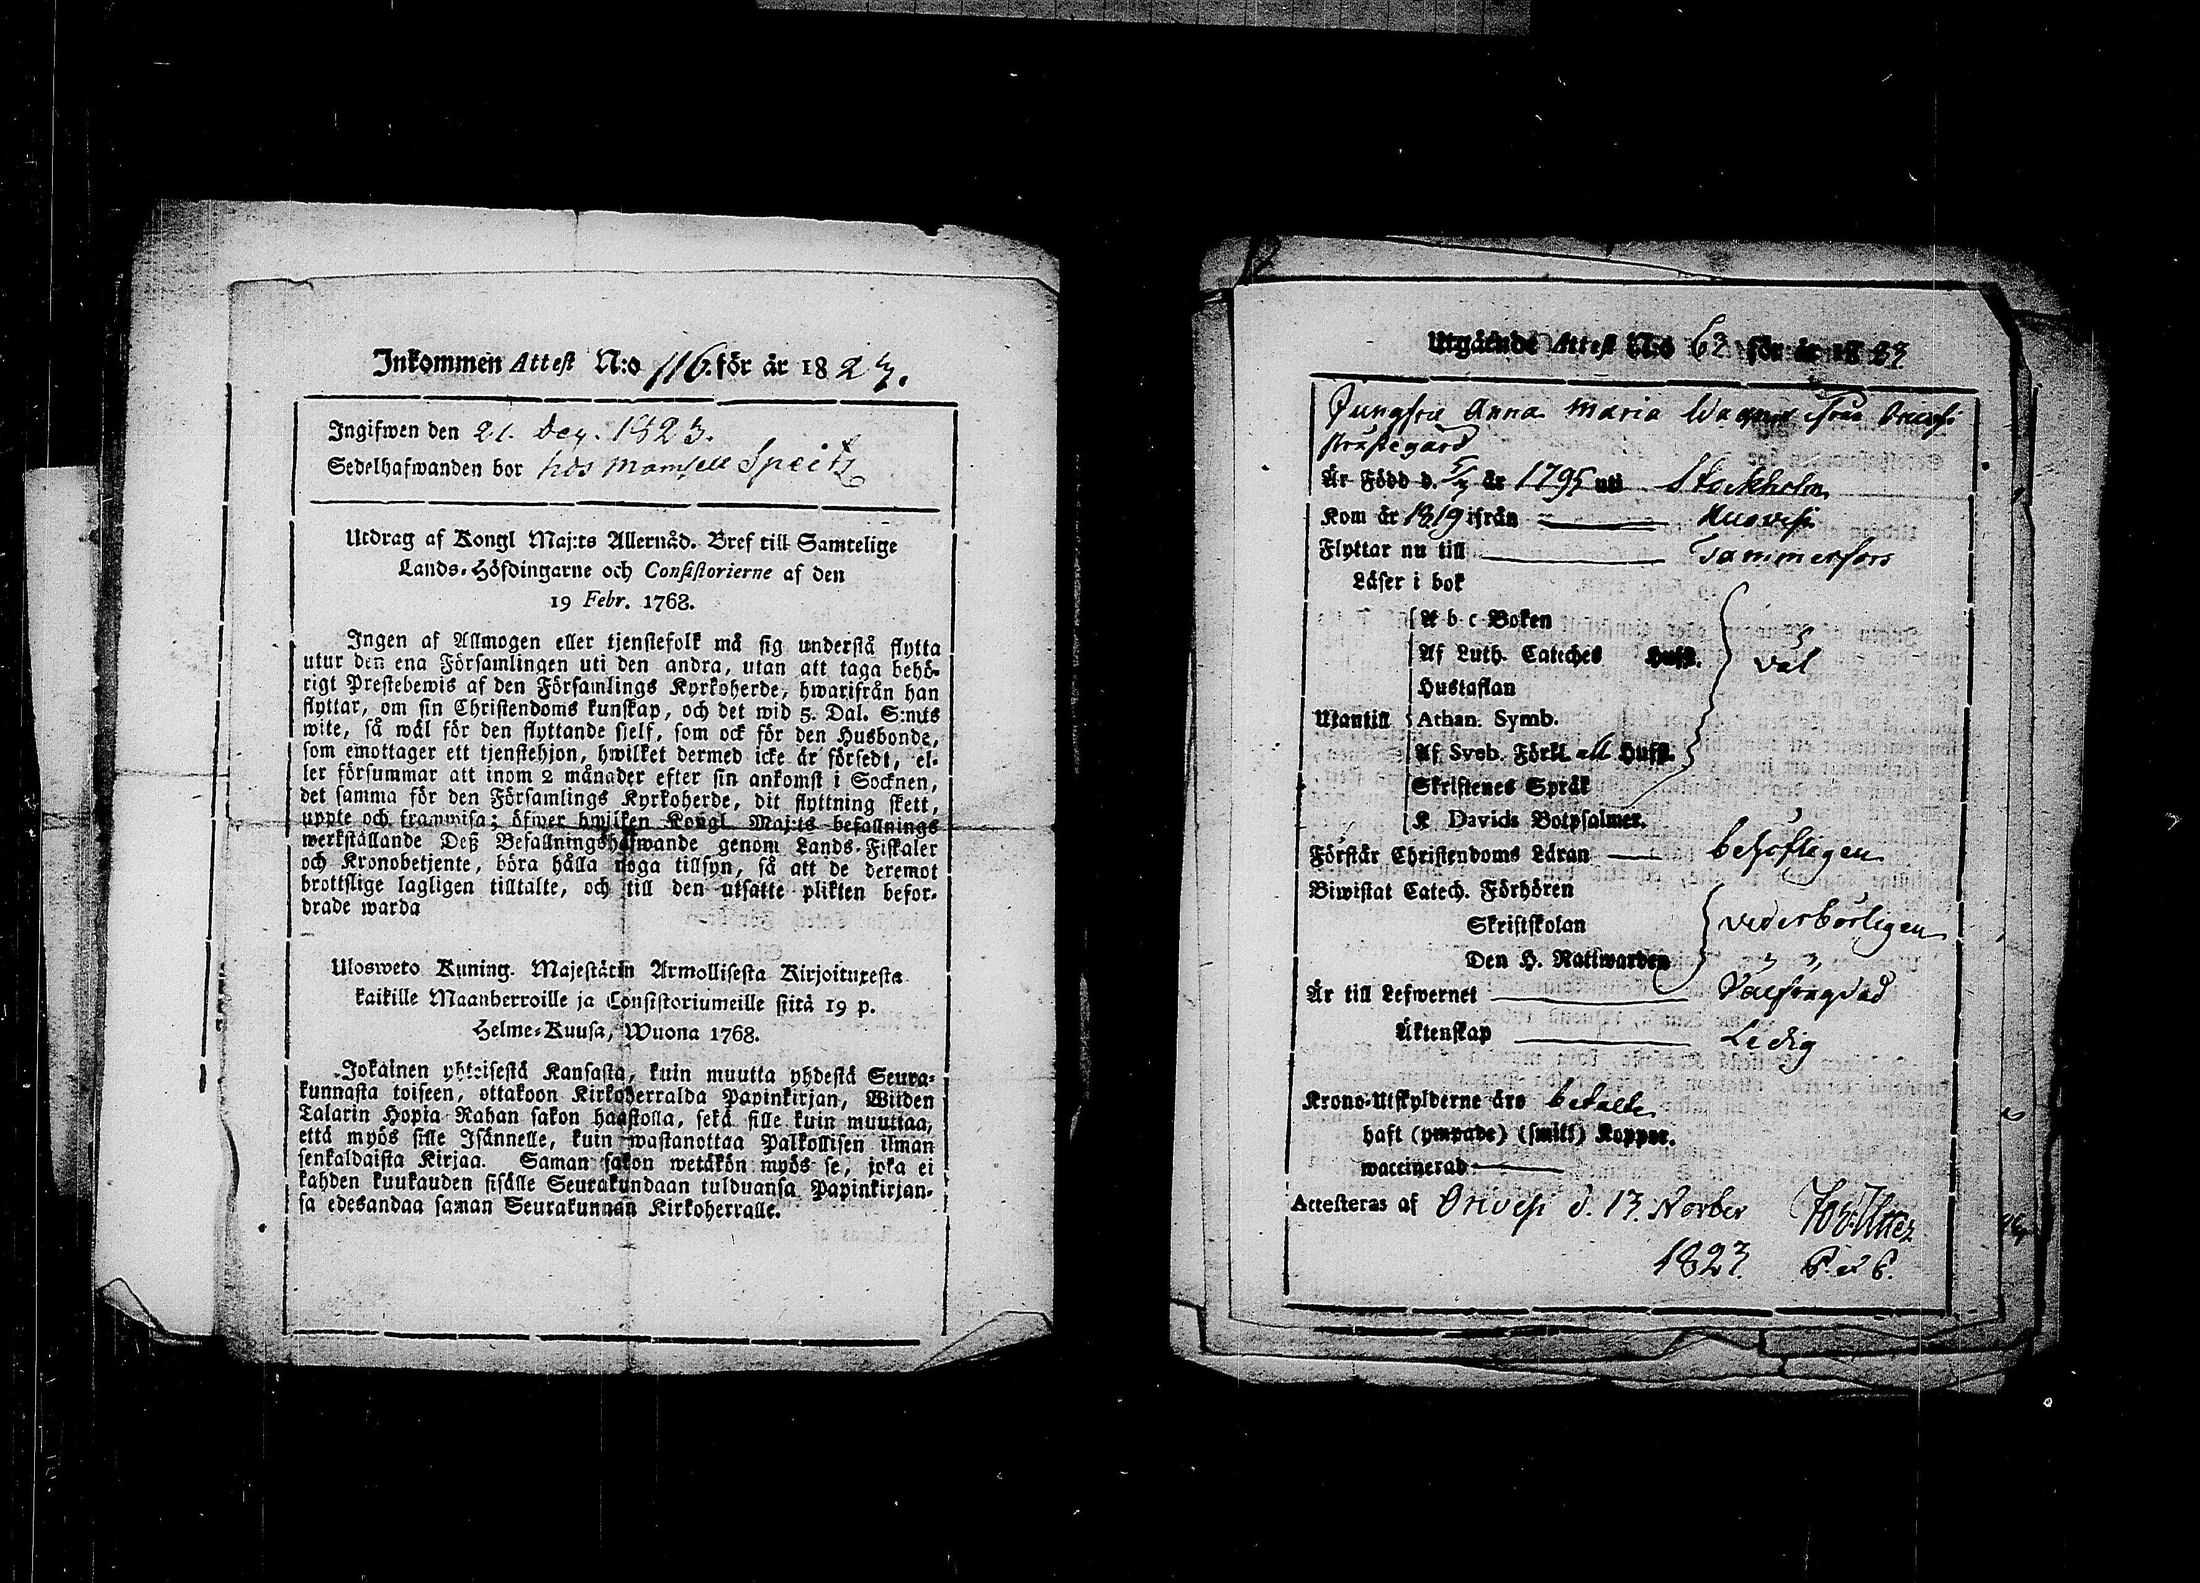 Inkommen Attest N:o 116. för år 1823.
Ingifwen den 21. Dec. 1823.
Sedelhafwanden bor hos Mamsell Speitz
Utdrag af Kongl Maj:ts Allernåd. Bref till Samtelige
Lands-Höfdingarne och Consistorierne af den
19 Febr. 1768.
Ingen af Allmogen eller tjenstefolk må sig understå flytta
utur den ena Församlingen uti den andra, utan att taga behö-
rigt Prestebewis af den Församlings Kyrkoherde, hwarifrån han
flyttar, om sin Christendoms kunskap, och det wid 5. Dal. S:mts
wite, så wäl för den flyttande sjelf, som ock för den Husbonde,
som emottager ett tjenstehjon, hwilket dermed icke är försedt, el-
ler försummar att inom 2 månader efter sin ankomst i Socknen,
det samma för den Församlings Kyrkoherde, dit flyttning skett,
uppte och framwisa; öfwer hwilken Kongl Maj:ts befallnings
werkställande Deß Befallningshafwande genom Lands-Fiskaler
och Kronobetjente, böra hålla noga tillsyn, så att de deremot
brottslige lagligen tilltalte, och till den utsatte plikten befor-
drade warda
Ulosweto Kuning. Majestätin Armollisesta Kirjoituxesta
kaikille Maanherroille ja Consistoriumeille siitä 19 p.
Helme-Kuusa, Wuona 1768.
Jokainen yhteisestä Kansasta, kuin muutta yhdestä Seura-
kunnasta toiseen, ottakoon Kirkoherralda Papinkirjan, Wiiden
Talarin Hopia Rahan sakon haastolla, sekä sille kuin muuttaa,
että myös sille Isännelle, kuin wastanottaa Palkollisen ilman
senkaldaista Kirjaa. Saman sakon wetäkön myös se, joka ei
kahden kuukauden sisälle Seurakundaan tulduansa Papinkirjan-
sa edesandaa saman Seurakunnan Kirkoherralle.
Utgående Attest N:o 62 för år 1823.
Jungfru Anna Maria från
Prästegård
Är Född d. år 1795 uti Stockholm
Kom år 1819 ifrån
Flyttar nu till Tammerfors
Läser i bok
A b c Boken
Af Luth. Cateches Hufst. väl
Hustaflan
Utantill Athan. Symb.
Af Sveb. Förkl. all Hufst.
Skriftenes Språk
K Davids Botpsalmer.
Förstår Christendoms Läran behöfligen
Biwistat Catech. Förhören
Skriftskolan vederbörligen
Den H. Nattwarden " "
Är till Lefwernet Välfrägdad
Äktenskap Ledig
Krono-Utskylderne äro betalte
haft (ympade) (smitt) Koppor.
waccinerad
Attesteras af Orivesi d. 13. Novber
1823.